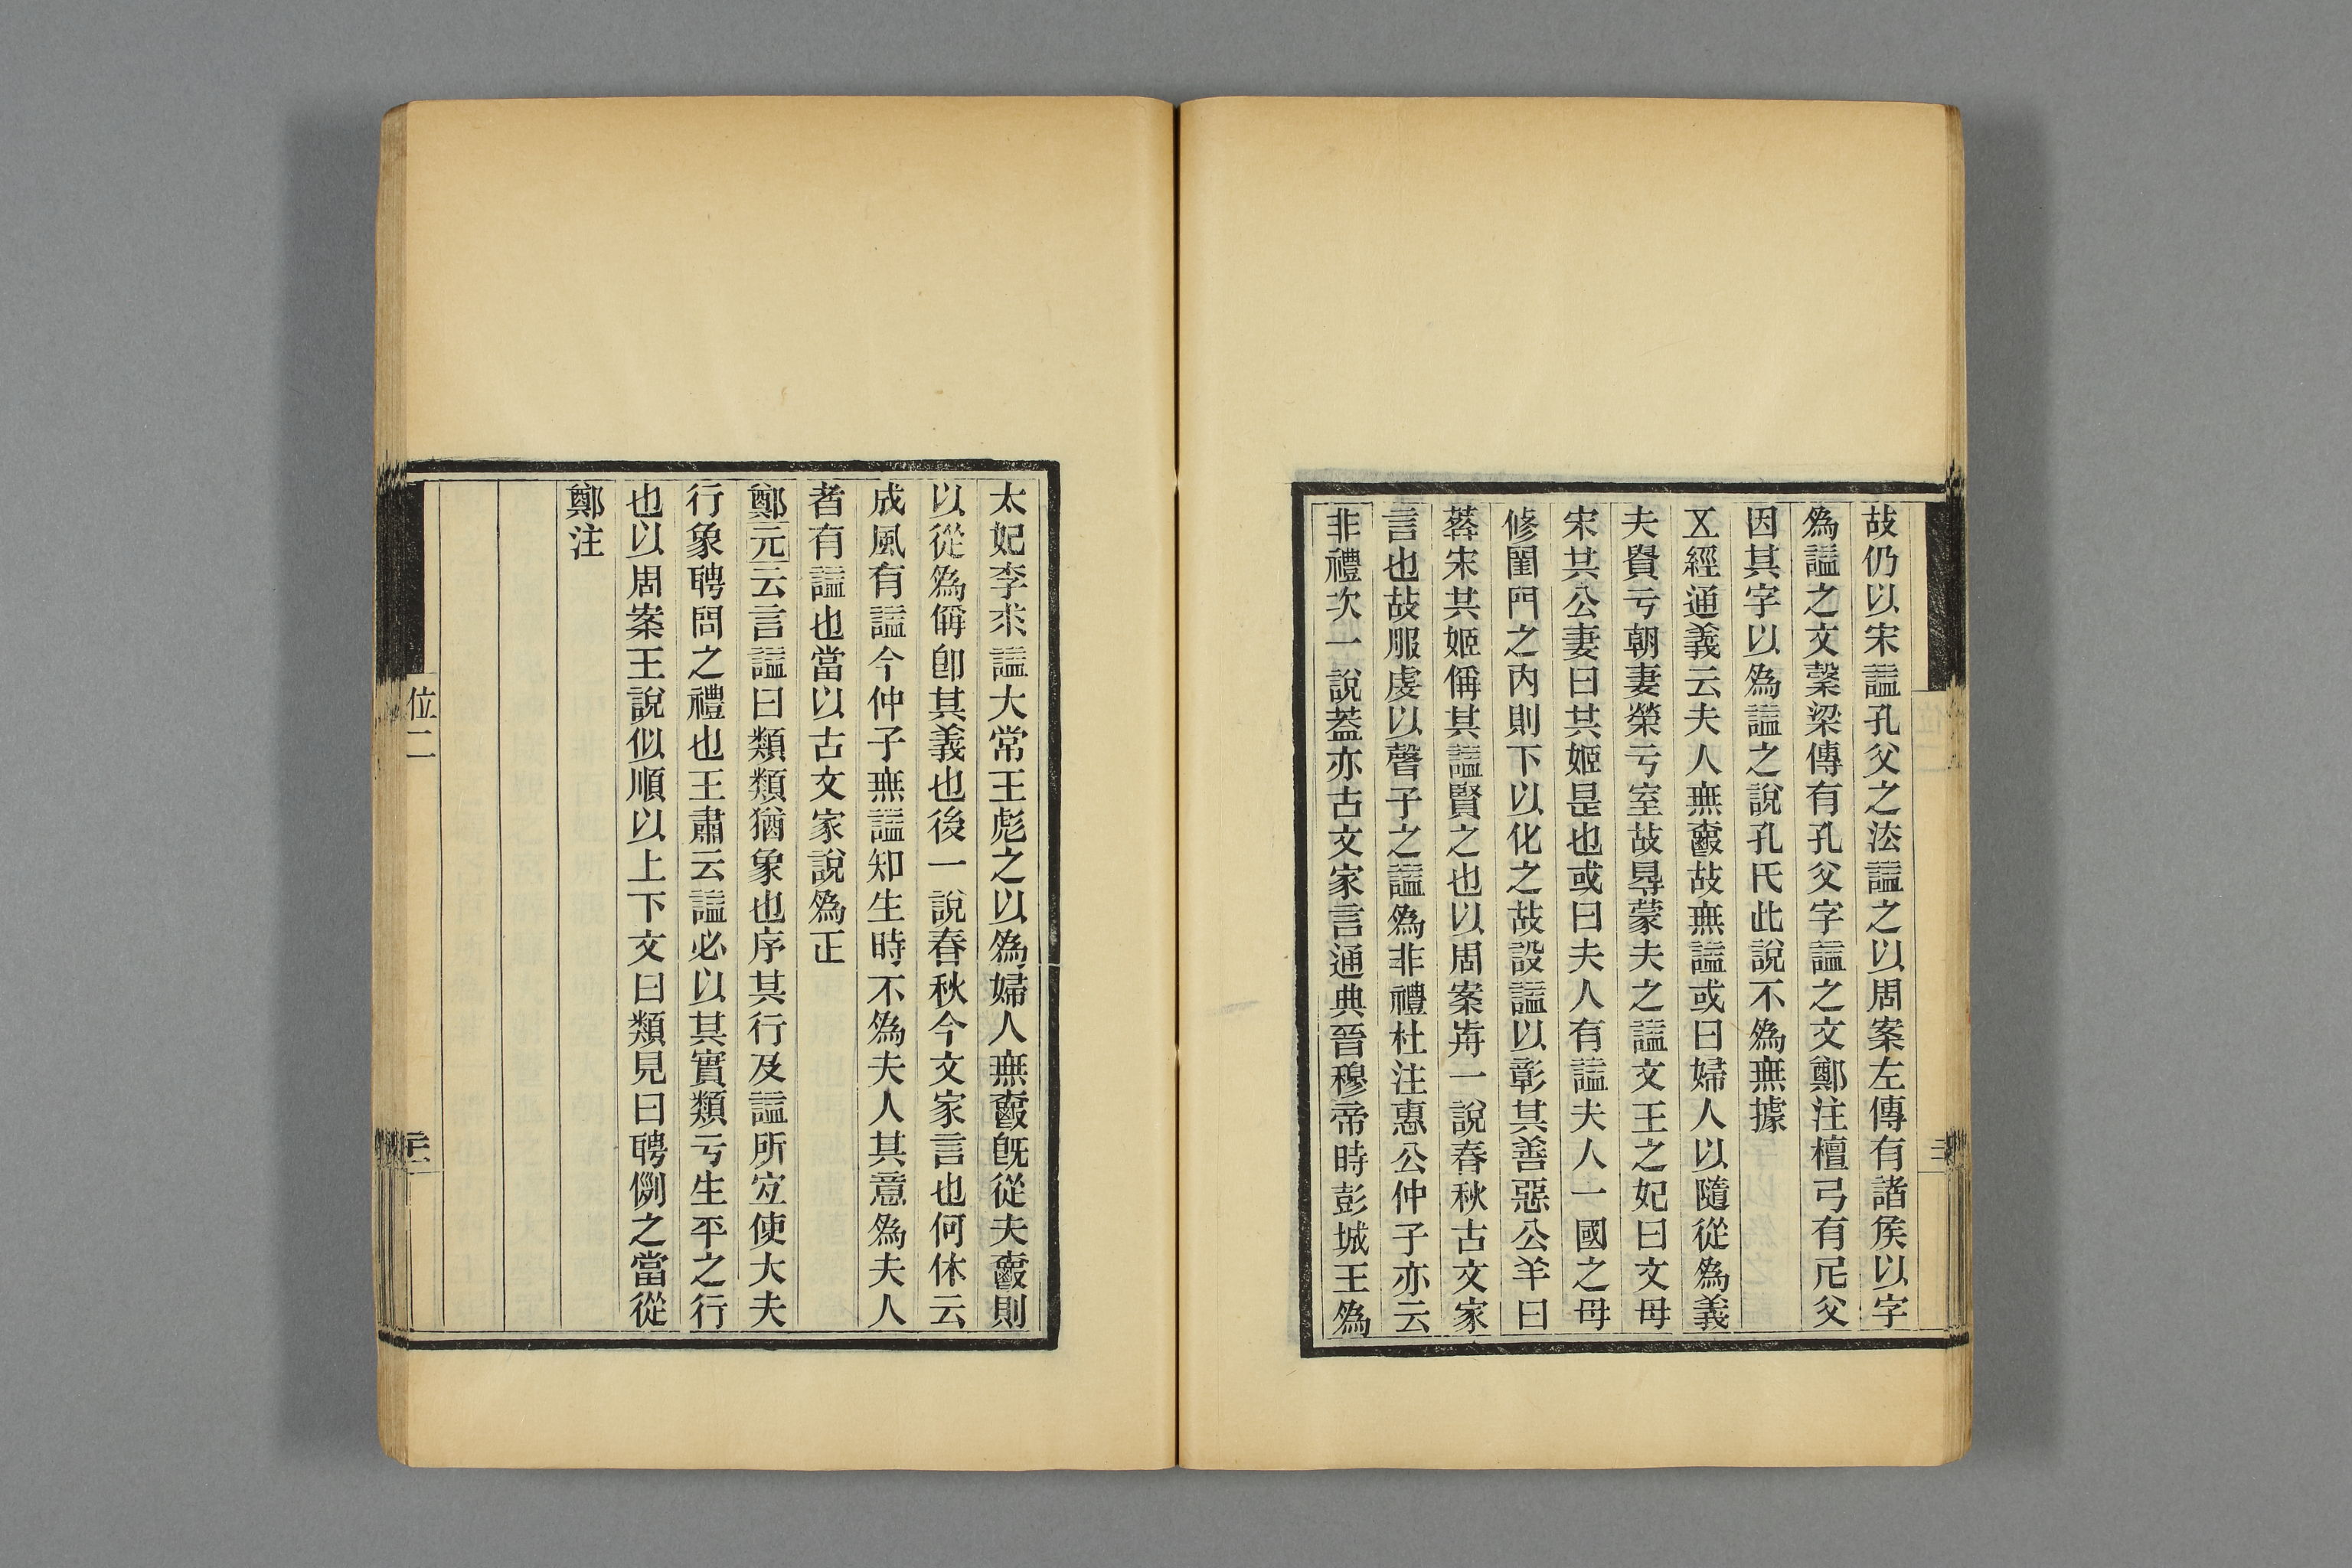 故仍以宋諡孔父之法諡之以周案左傳有諸侯以字
爲諡之文榖梁傳有孔父字諡之文鄭注檀弓有尼父
因其字以爲諡之說孔氏此說不爲無據
五經通義云夫人無爵故無諡或曰婦人以隨從爲義
夫貴亏朝妻榮亏室故得蒙夫之諡文王之妃曰文母
宋共公妻曰共姬是也或曰夫人有諡夫人一國之母
修閨門之內則下以化之故設諡以彰其善惡公羊曰
葬宋共姬偁其諡賢之也以周案歬一說春秋古文家
言也故服虔以聲子之諡爲非禮杜注惠公仲子亦云
非禮次一說葢亦古文家言通典晉穆帝時彭城王爲
太妃李求諡大常王彪之以爲婦人無爵旣從夫爵則
以從爲偁卽其義也後一說春秋今文家言也何休云
成風有諡今仲子無諡知生時不爲夫人其意爲夫人
者有諡也當以古文家說爲正
鄭元云言諡曰類類猶象也序其行及諡所宜使大夫
行象聘問之禮也王肅云諡必以其實類亏生平之行
也以周案王說似順以上下文曰類見曰聘例之當從
鄭注
位二